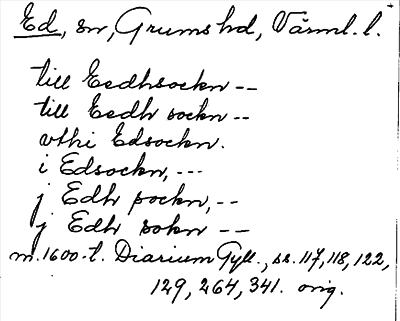 Ed, sn, Grums hd, Värml. l.
till Eedhsockn --
till Eedh sockn --
vthi Edsockn.
i Edsockn, ---
j Edh sockn, --
j Edh sokn --
m. 1600-t. Diarium Gyll., ss. 117, 118, 122,
129, 264, 341. orig.